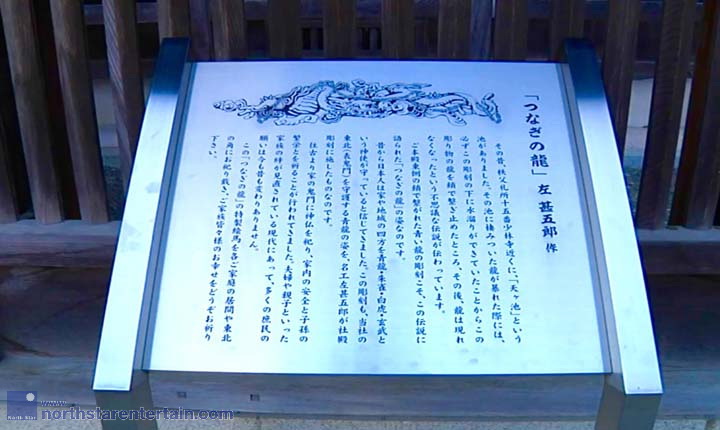 「つなぎの龍」左 甚五郎 作
その昔、秩父札所十五番少林寺近くに、「天ヶ池」という
池がありました。その池に棲みついた龍が暴れた際には、
必ずこの彫刻の下に水溜りができていたことからこの
彫り物の龍を鎖で繋ぎ止めたところ、その後、龍は現れ
なくなったという不思議な伝説が伝わっています。
ご本殿東側の鎖で繋がれた青い龍の彫刻こそ、この伝説に
語られた「つなぎの龍」の姿なのです。
昔から日本人は家や地域の四方を青龍・朱雀・白虎・玄武と
いう神使が守っていると信じてきました。この彫刻も、当社の
東北(表鬼門)を守護する青龍の姿を、名工左甚五郎が社殿
彫刻に施したものなのです。
往古より家の鬼門に神仏を祀り、家内の安全と子孫の
繁栄とを祈ることが行われてきました。夫婦や親子といった
家族の絆が見直されている現代にあって、多くの庶民の
願いは今も昔も変わりありません。
この「つなぎの龍」の特製絵馬を各ご家庭の居間や東北
の角にお祀り戴き、ご家族皆々様のお幸せをどうぞお祈り
下さい。
www.
northstarentertain.com